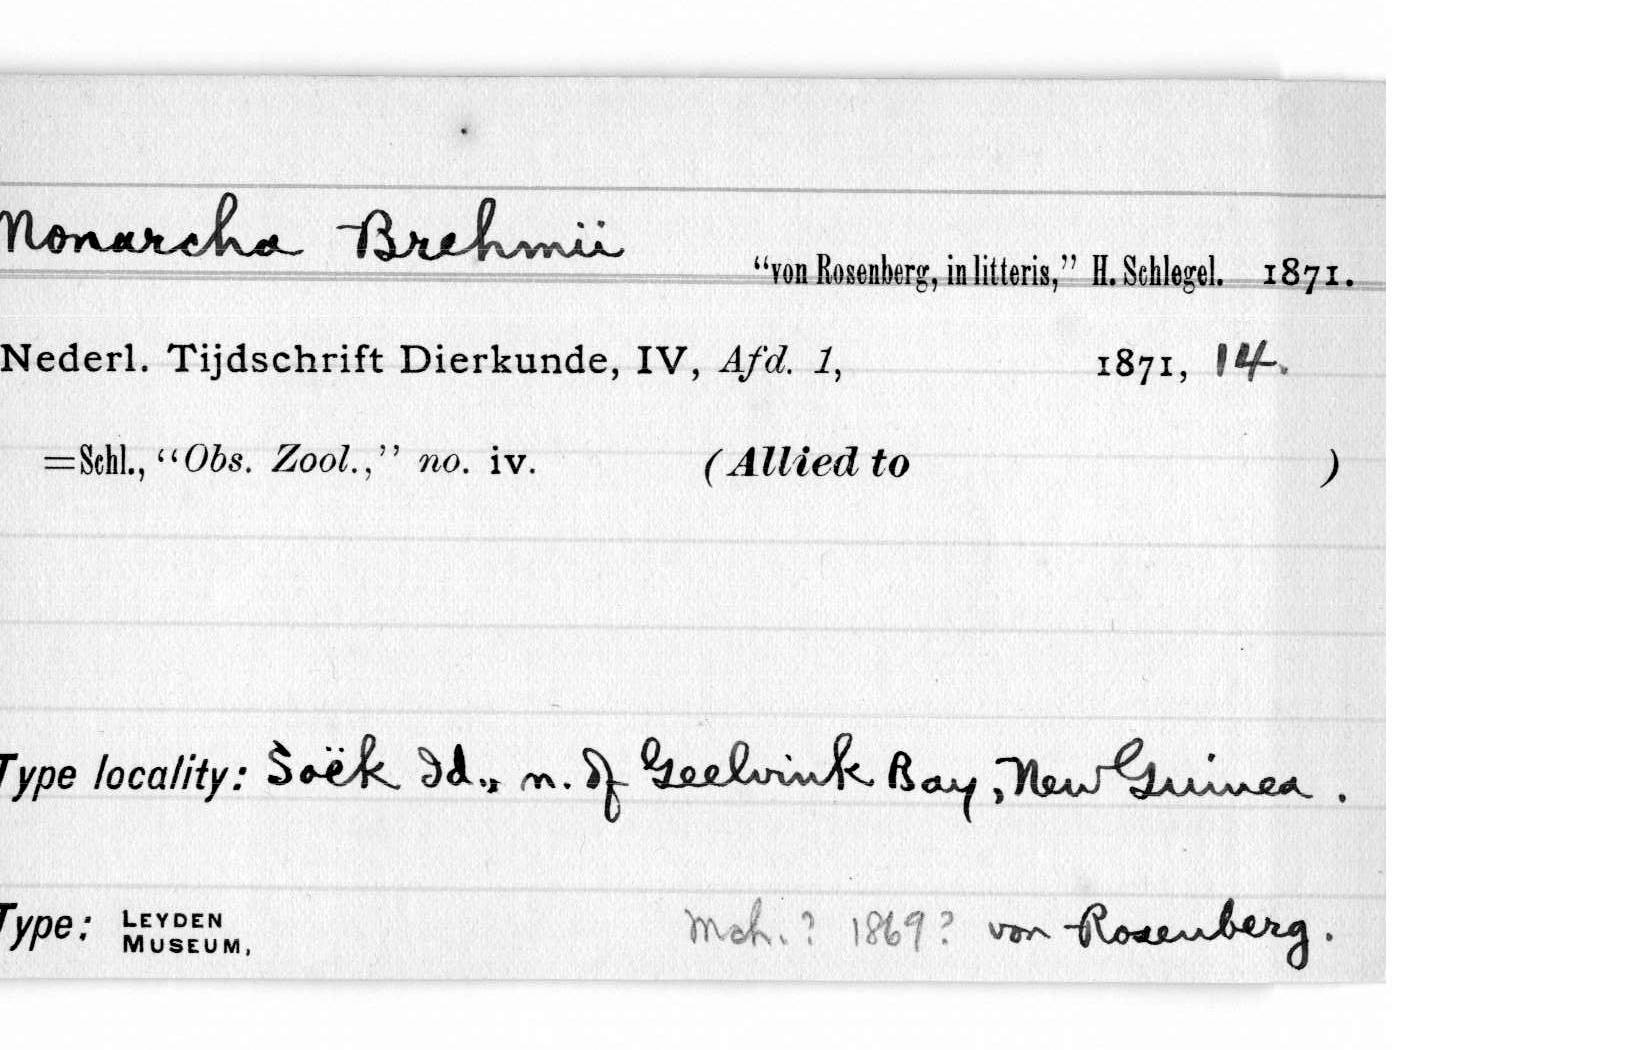 Monarcha Brehmii
“von Rosenberg, in litteris,” H. Schlegel. 1871.
Nederl. Tijdschrift Dierkunde, IV, Afd. 1, 1871, 14.
=Schl., “Obs. Zool.,” no. iv. (Allied to )
Type locality: Soëk Id., n. of Geelvink Bay, New Guinea.
Type: LEYDEN MUSEUM, Mch.? 1869? von Rosenberg.